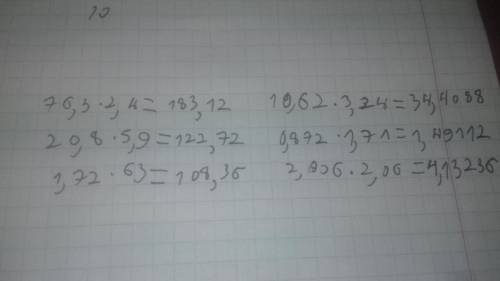 10
76,3 · 2,4 = 183,12
20,8 · 5,9 = 122,72
1,72 · 63 = 108,36
10,62 · 3,24 = 34,4088
0,872 · 1,71 = 1,49112
2,006 · 2,06 = 4,13236